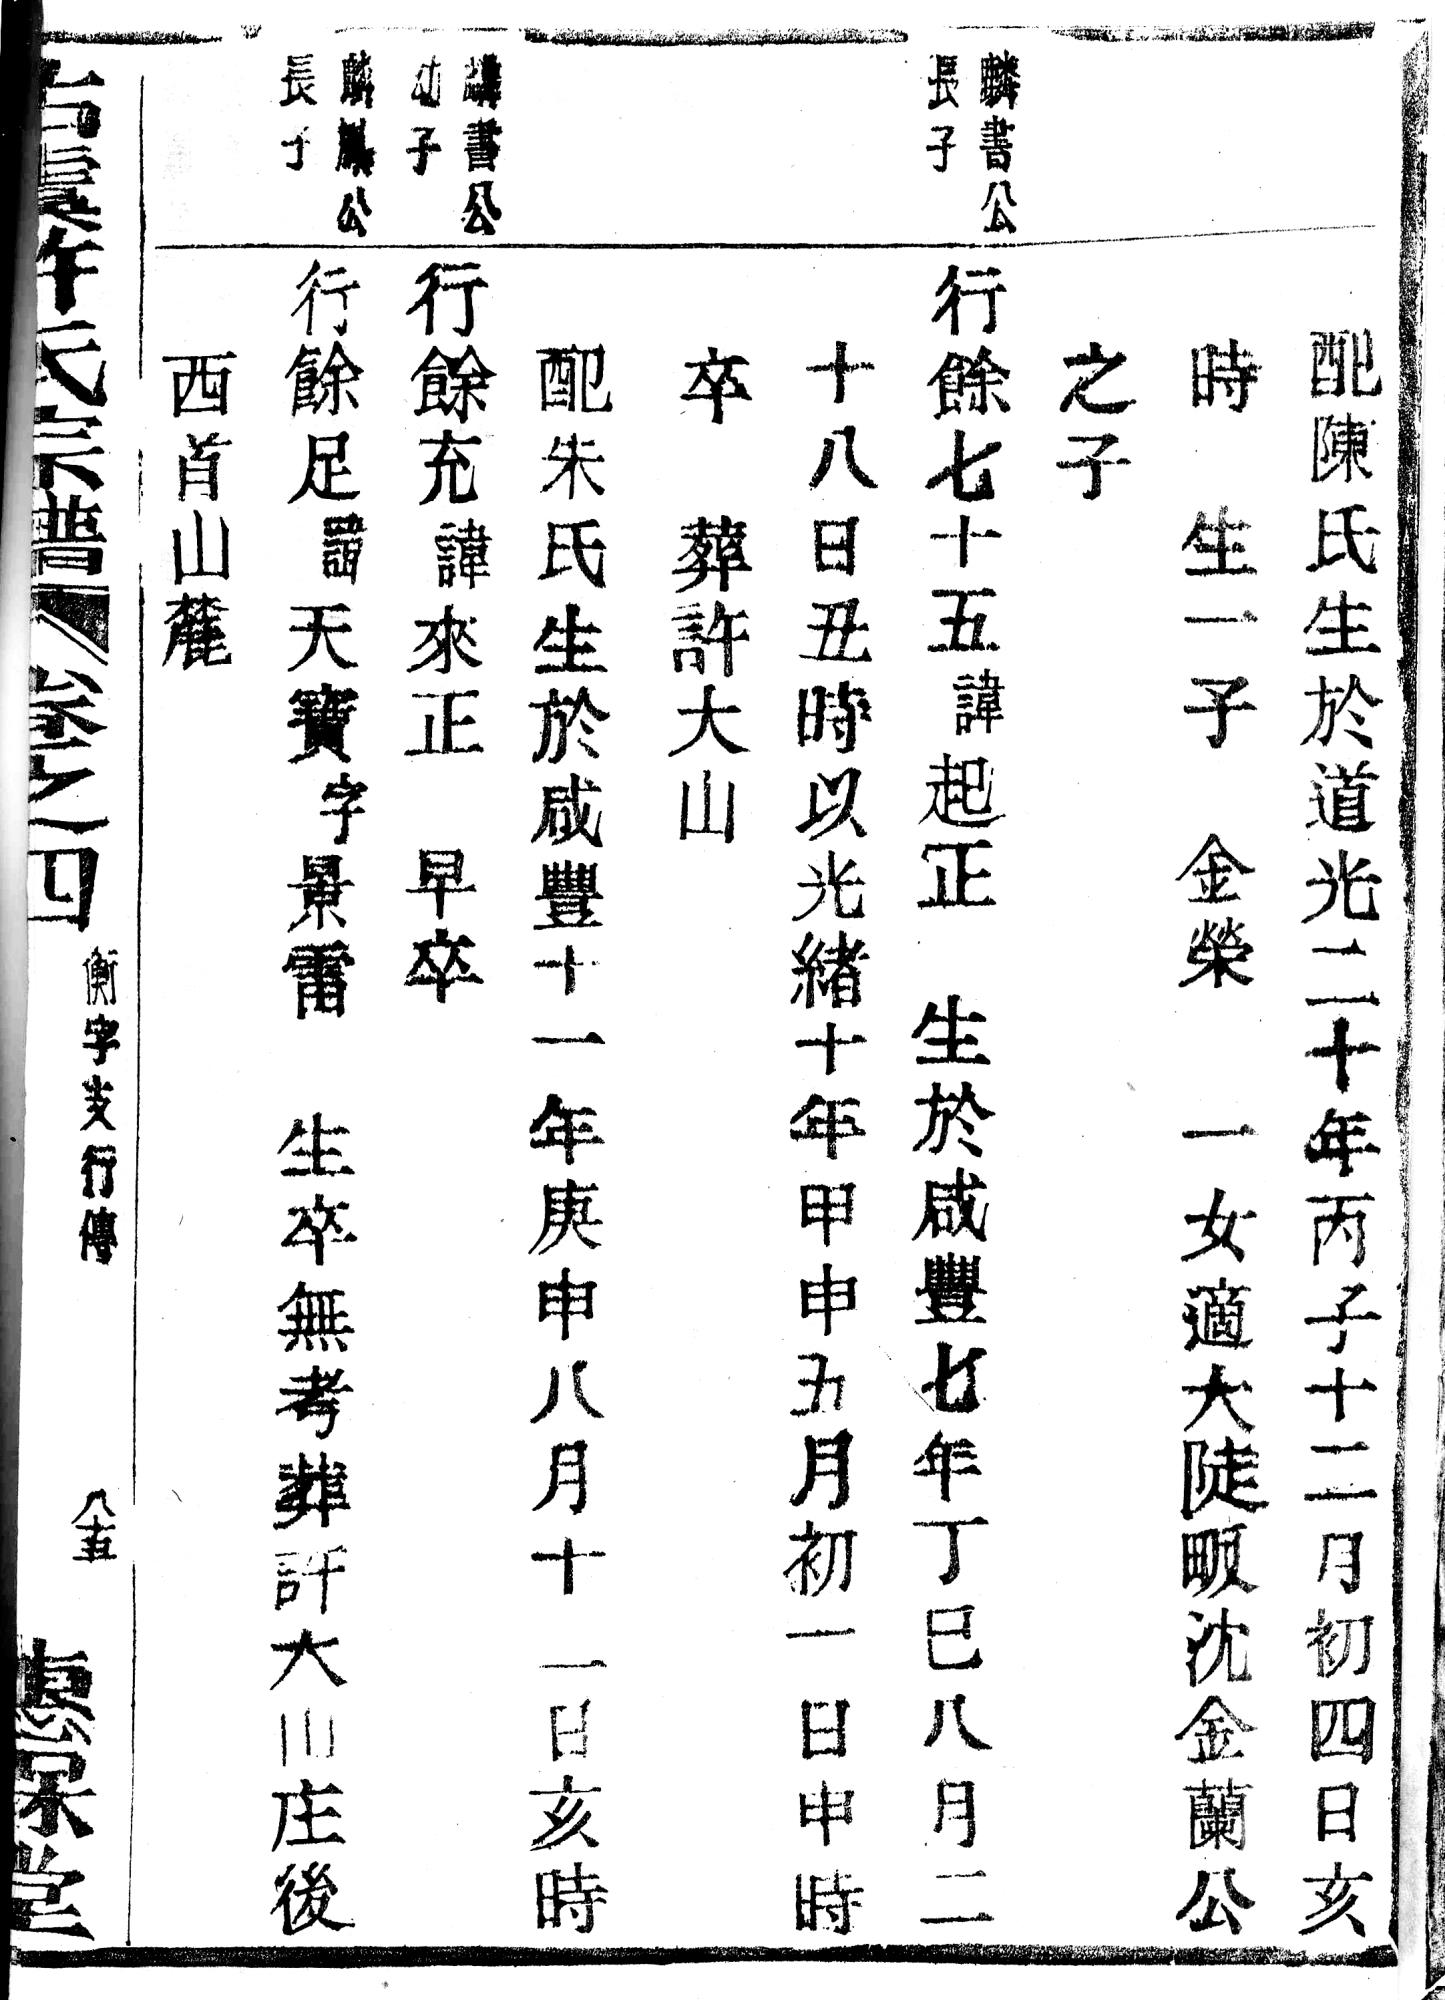 配陳氏生於道光二十年丙子十二月初四日亥
時　生一子　金榮　一女適大陡畈沈金蘭公
之子
麟書公
長子
行餘七十五諱起正　生於咸豐七年丁巳八月二
十八日丑時以光緒十年甲申五月初一日申時
卒　葬許大山
配朱氏生於咸豐十一年庚申八月十一日亥時
書公
幼子
行餘充諱來正　早卒
麟公
長子
行餘足諱天寶字景雷　生卒無考葬許大山庄後
西首山麓
古虞許氏宗譜 卷之四
衡字支行傳
八十五
惇棠堂